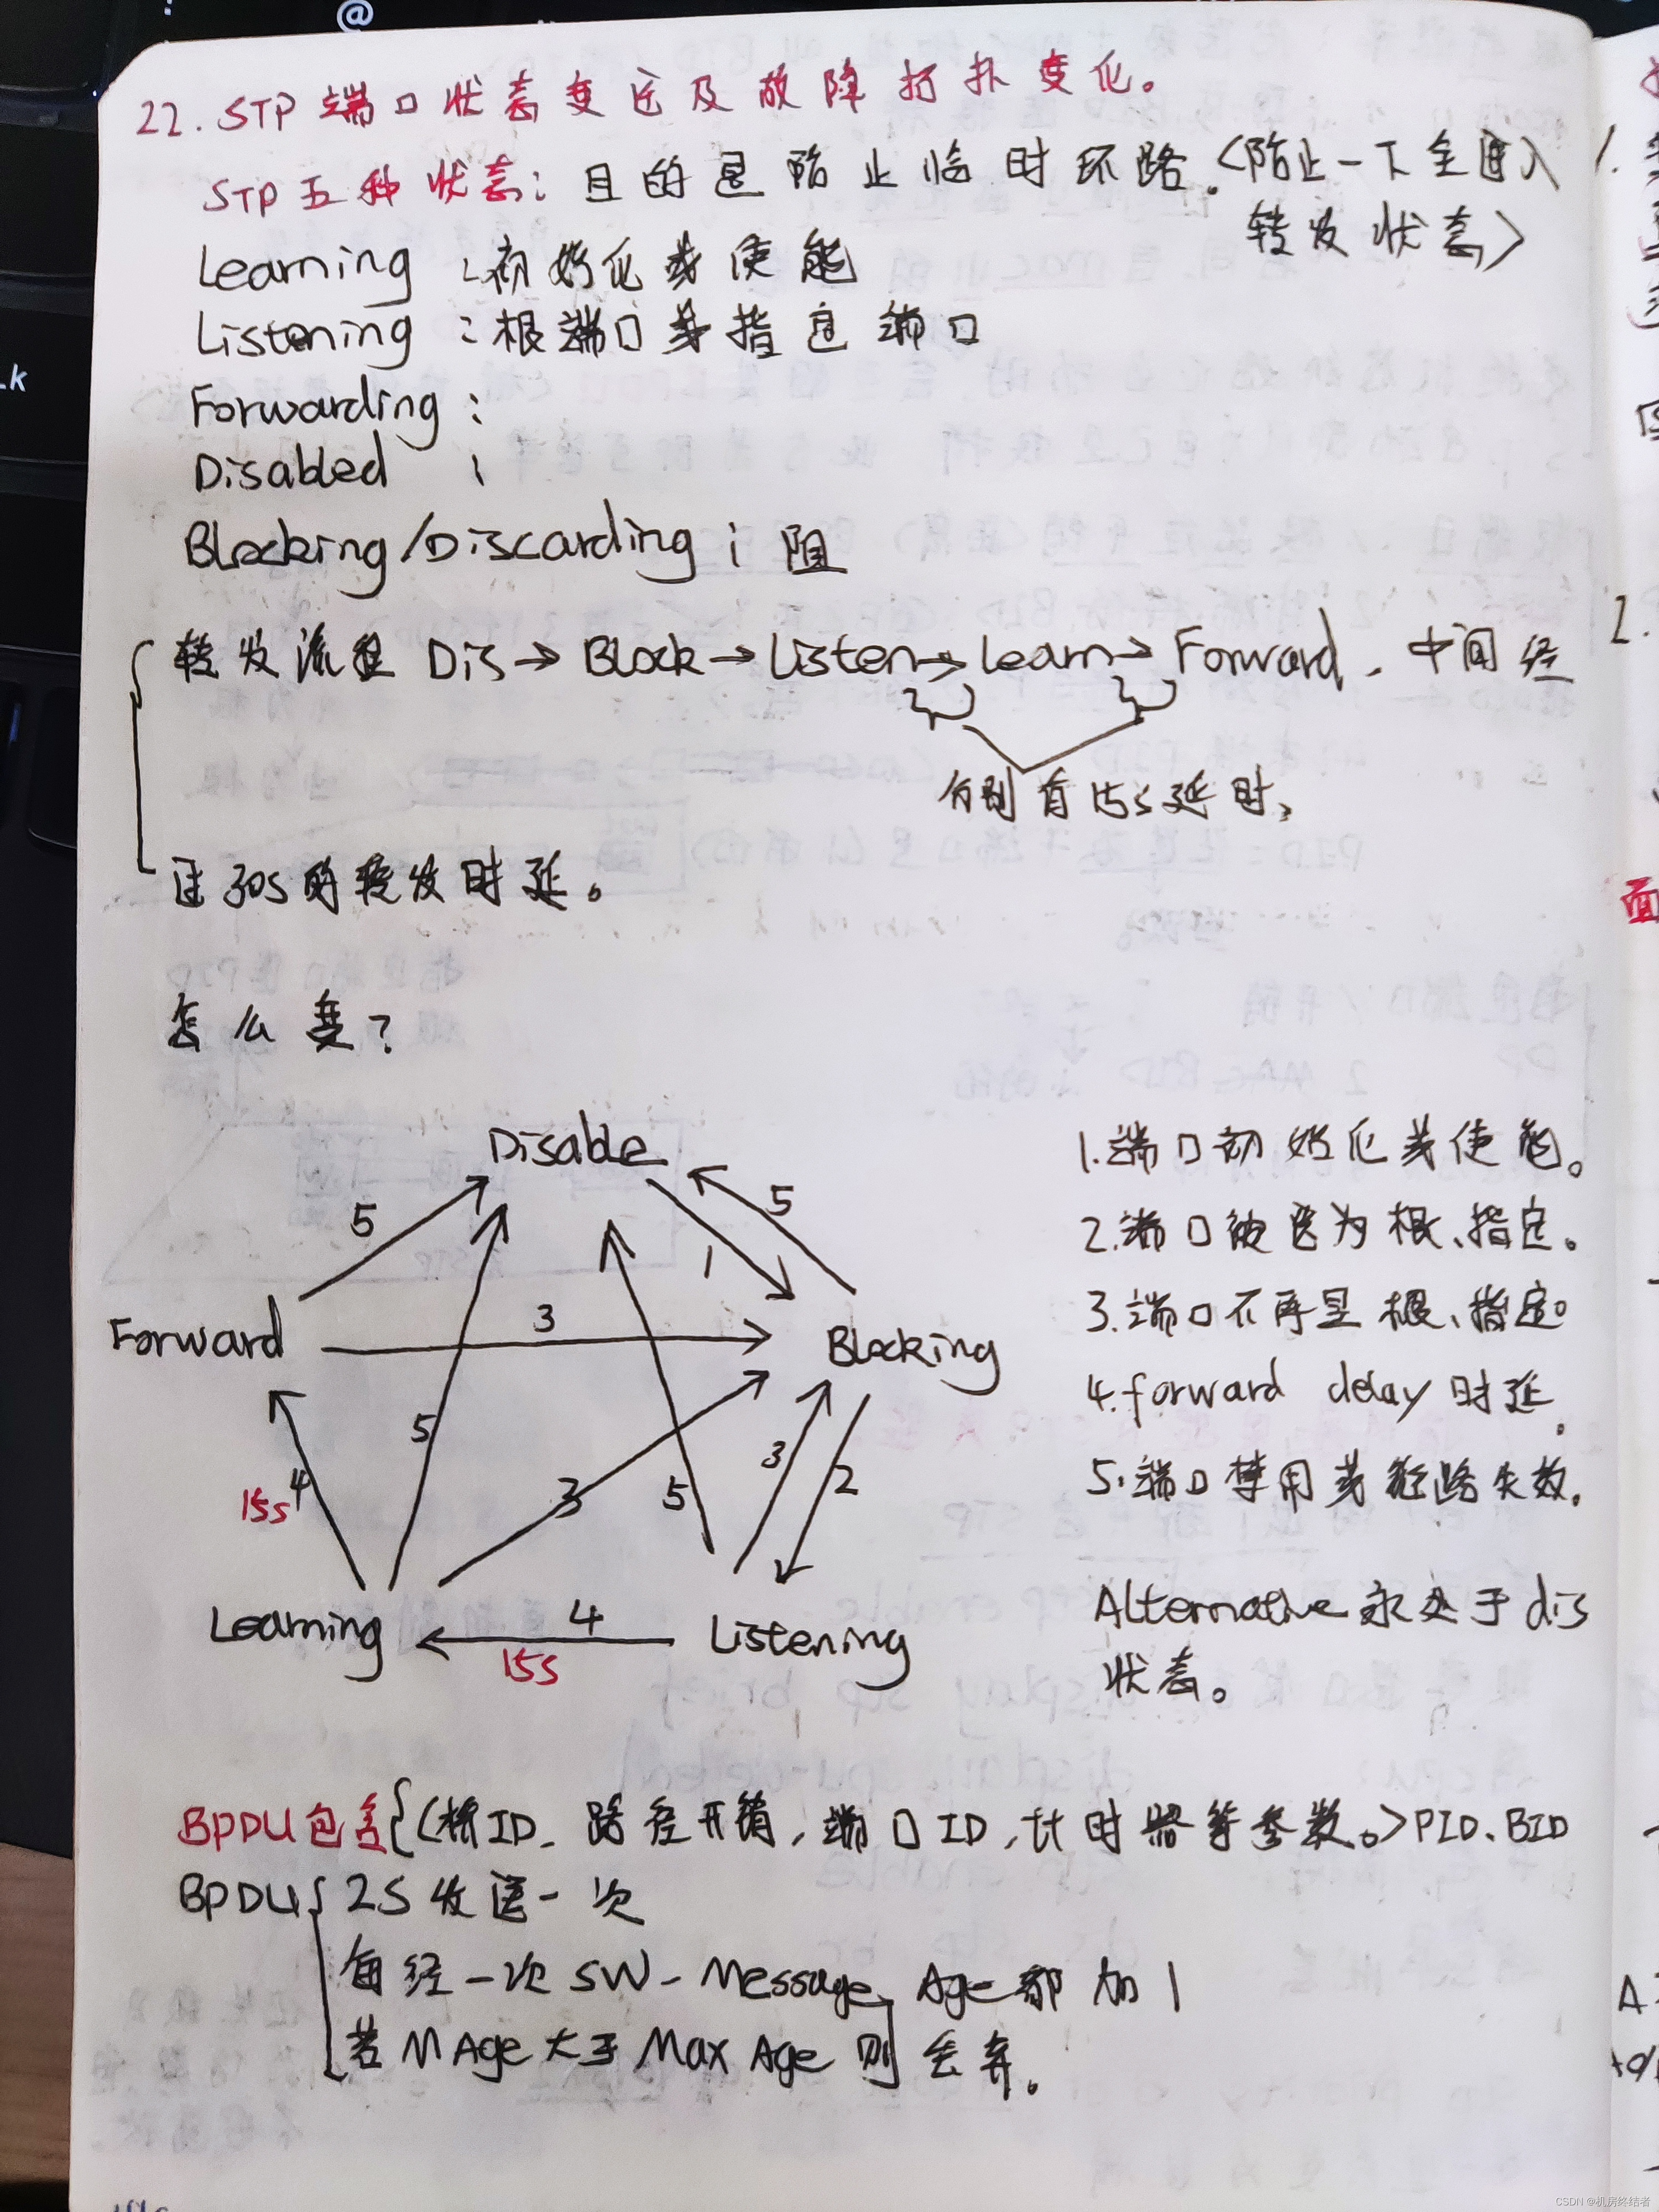 22. STP 端口状态变迁及故障拓扑变化。
STP五种状态：目的是防止临时环路。<防止一下全进入
转发状态>
Learning ：初始化或使能
Listening ：根端口或指定端口
Forwarding：
Disabled ：
Blocking/Discarding：阻
转发流程 Dis→Block→Listen→Learn→Forward，中间经
分别有15s延时，
过30s的转发时延。
怎么变？
Disable
5
5
1
Forward
3
Blocking
5
3
5
3
2
15s 4
Learning
4
15s
Listening
1.端口初始化或使能。
2.端口被选为根、指定。
3.端口不再是根、指定。
4.forward delay时延。
5.端口禁用或链路失效。
Alternative永处于dis
状态。
BPDU包含{<桥ID、路径开销，端口ID，计时器等参数。>PID、BID
BPDU{2S发送一次
每经一次SW-Message Age都加1
若MAge大于Max Age则丢弃。
CSDN @机房终结者